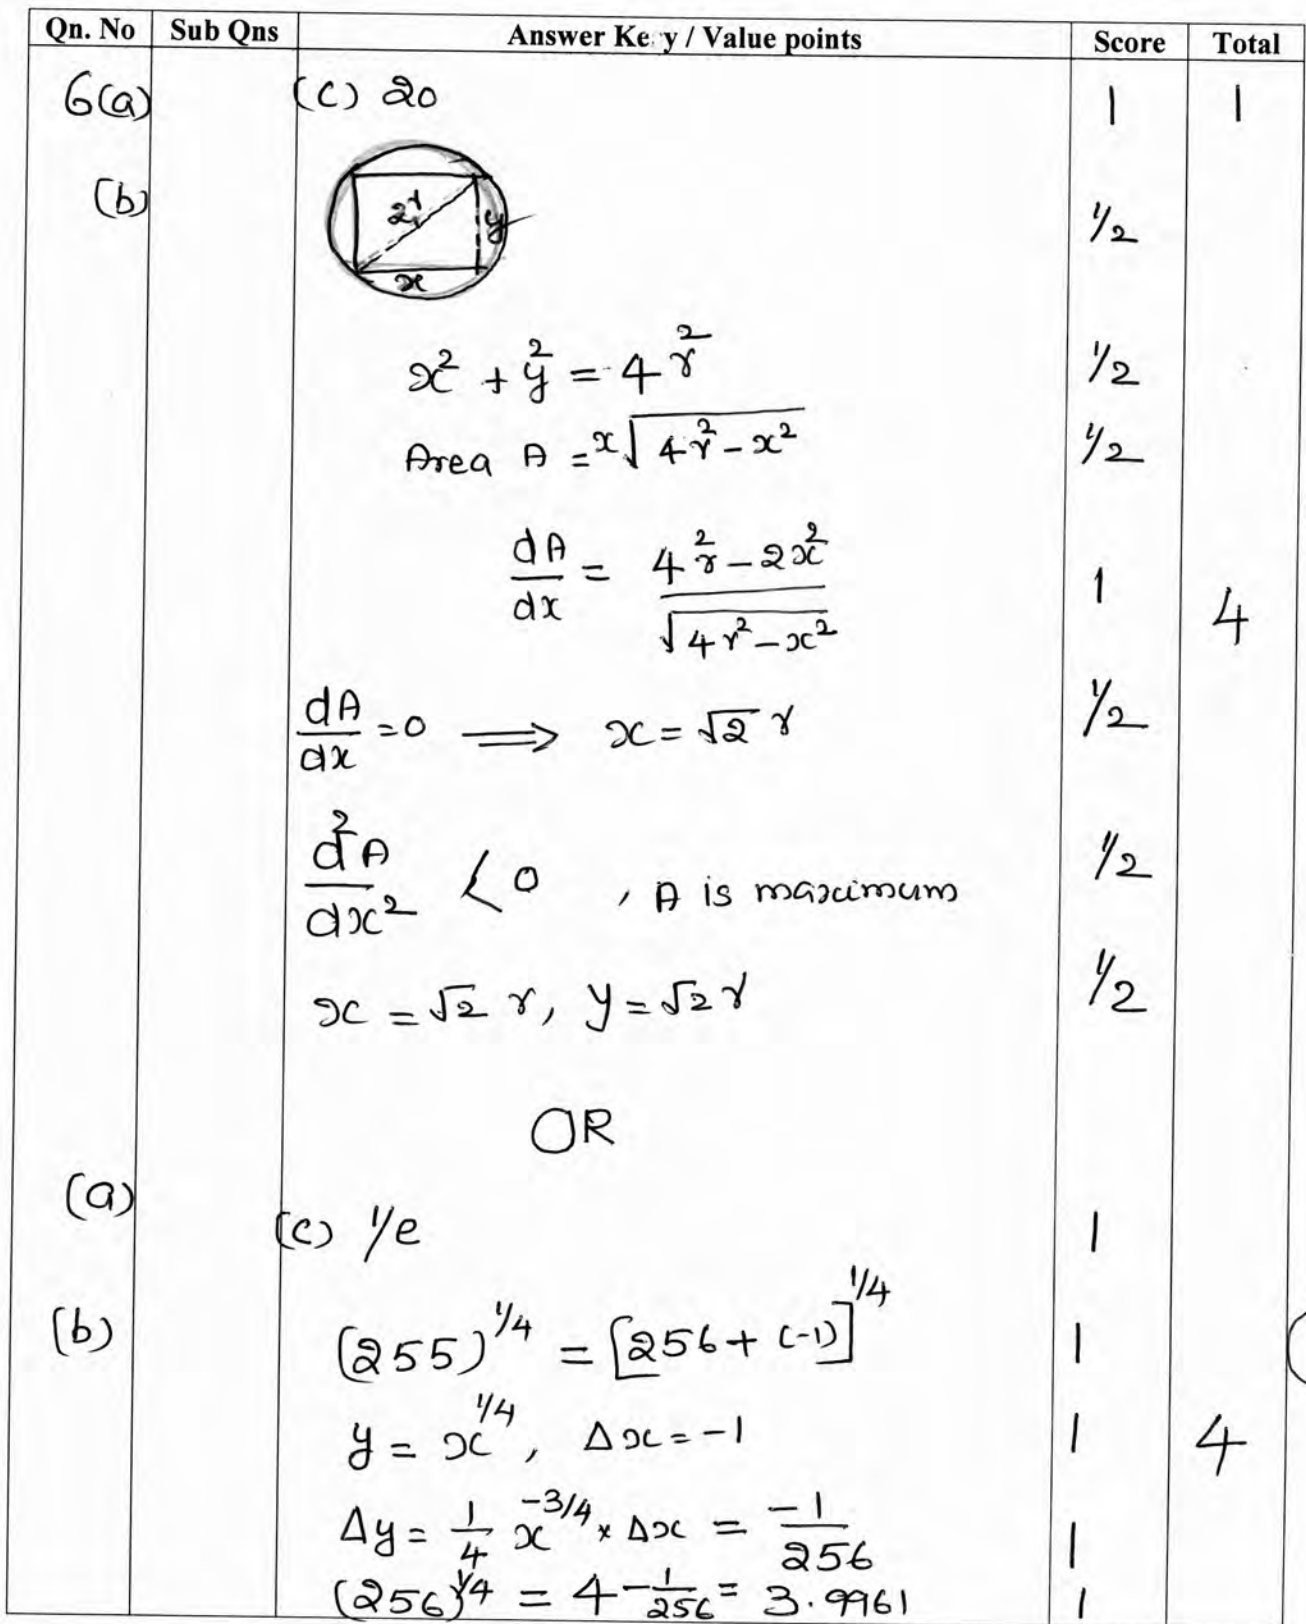 Qn. No Sub Qns Answer Key / Value points Score Total
6(a) (c) 20 1 1
(b) 2r y 1/2
x
x² + y² = 4r² 1/2
Area A = x√(4r² - x²) 1/2
dA/dx = (4r² - 2x²)/√(4r² - x²) 1 4
dA/dx = 0 ⟹ x = √2 r 1/2
d²A/dx² < 0 , A is maximum 1/2
x = √2 r, y = √2 r 1/2
OR
(a) (c) 1/e 1
(b) (255)^1/4 = [256 + (-1)]^1/4 1
y = x^1/4, Δx = -1 1 4
Δy = 1/4 x^-3/4 × Δx = -1/256 1
(256)^1/4 = 4 - 1/256 = 3.9961 1